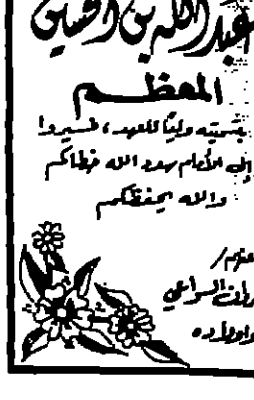 عبدالله بن الحسين
المعظم
بتسميته ولياً للعهد، فسيروا
إلى الأمام سدد الله خطاكم
والله يحفظكم
عنهم/